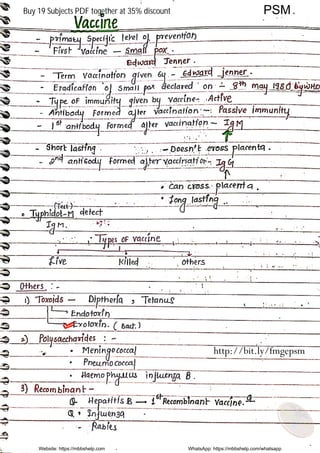 Buy 19 Subjects PDF together at 35% discount
PSM.
Vaccine
- primary specific level of prevention
- First Vaccine — small pox.
Edward Jenner.
- Term vaccination given by - Edward jenner.
- Eradication of Small pox declared on - 8th may 1980 by WHO
- Type of immunity given by vaccine - Active
- Antibody Formed after vaccination - Passive immunity
- 1st antibody Formed after vaccination - IgM
- Short lasting - Doesn't cross placenta.
- 2nd antibody Formed after vaccination - IgG
• Can cross placenta.
• long lasting
(Test)
• Typhidot-M detect
IgM.
Types of vaccine
Live killed others
Others : -
1) Toxoids — Diptheria, Tetanus
Endotoxin
Exotoxin. ( Bact.)
2) Polysaccharides : -
• Meningococcal
http://bit.ly/fmgepsm
• Pneumococcal
• Haemophyllus influenza B.
3) Recombinant -
Hepatitis B → 1st Recombinant vaccine.
Influenza
- Rabies
Website: https://mbbshelp.com
WhatsApp: https://mbbshelp.com/whatsapp